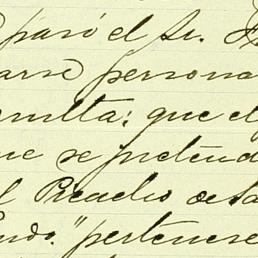 pasó el Sr.
arse persona
multa; que el
ue se pretend
l Rancho de Sa
"pertenece